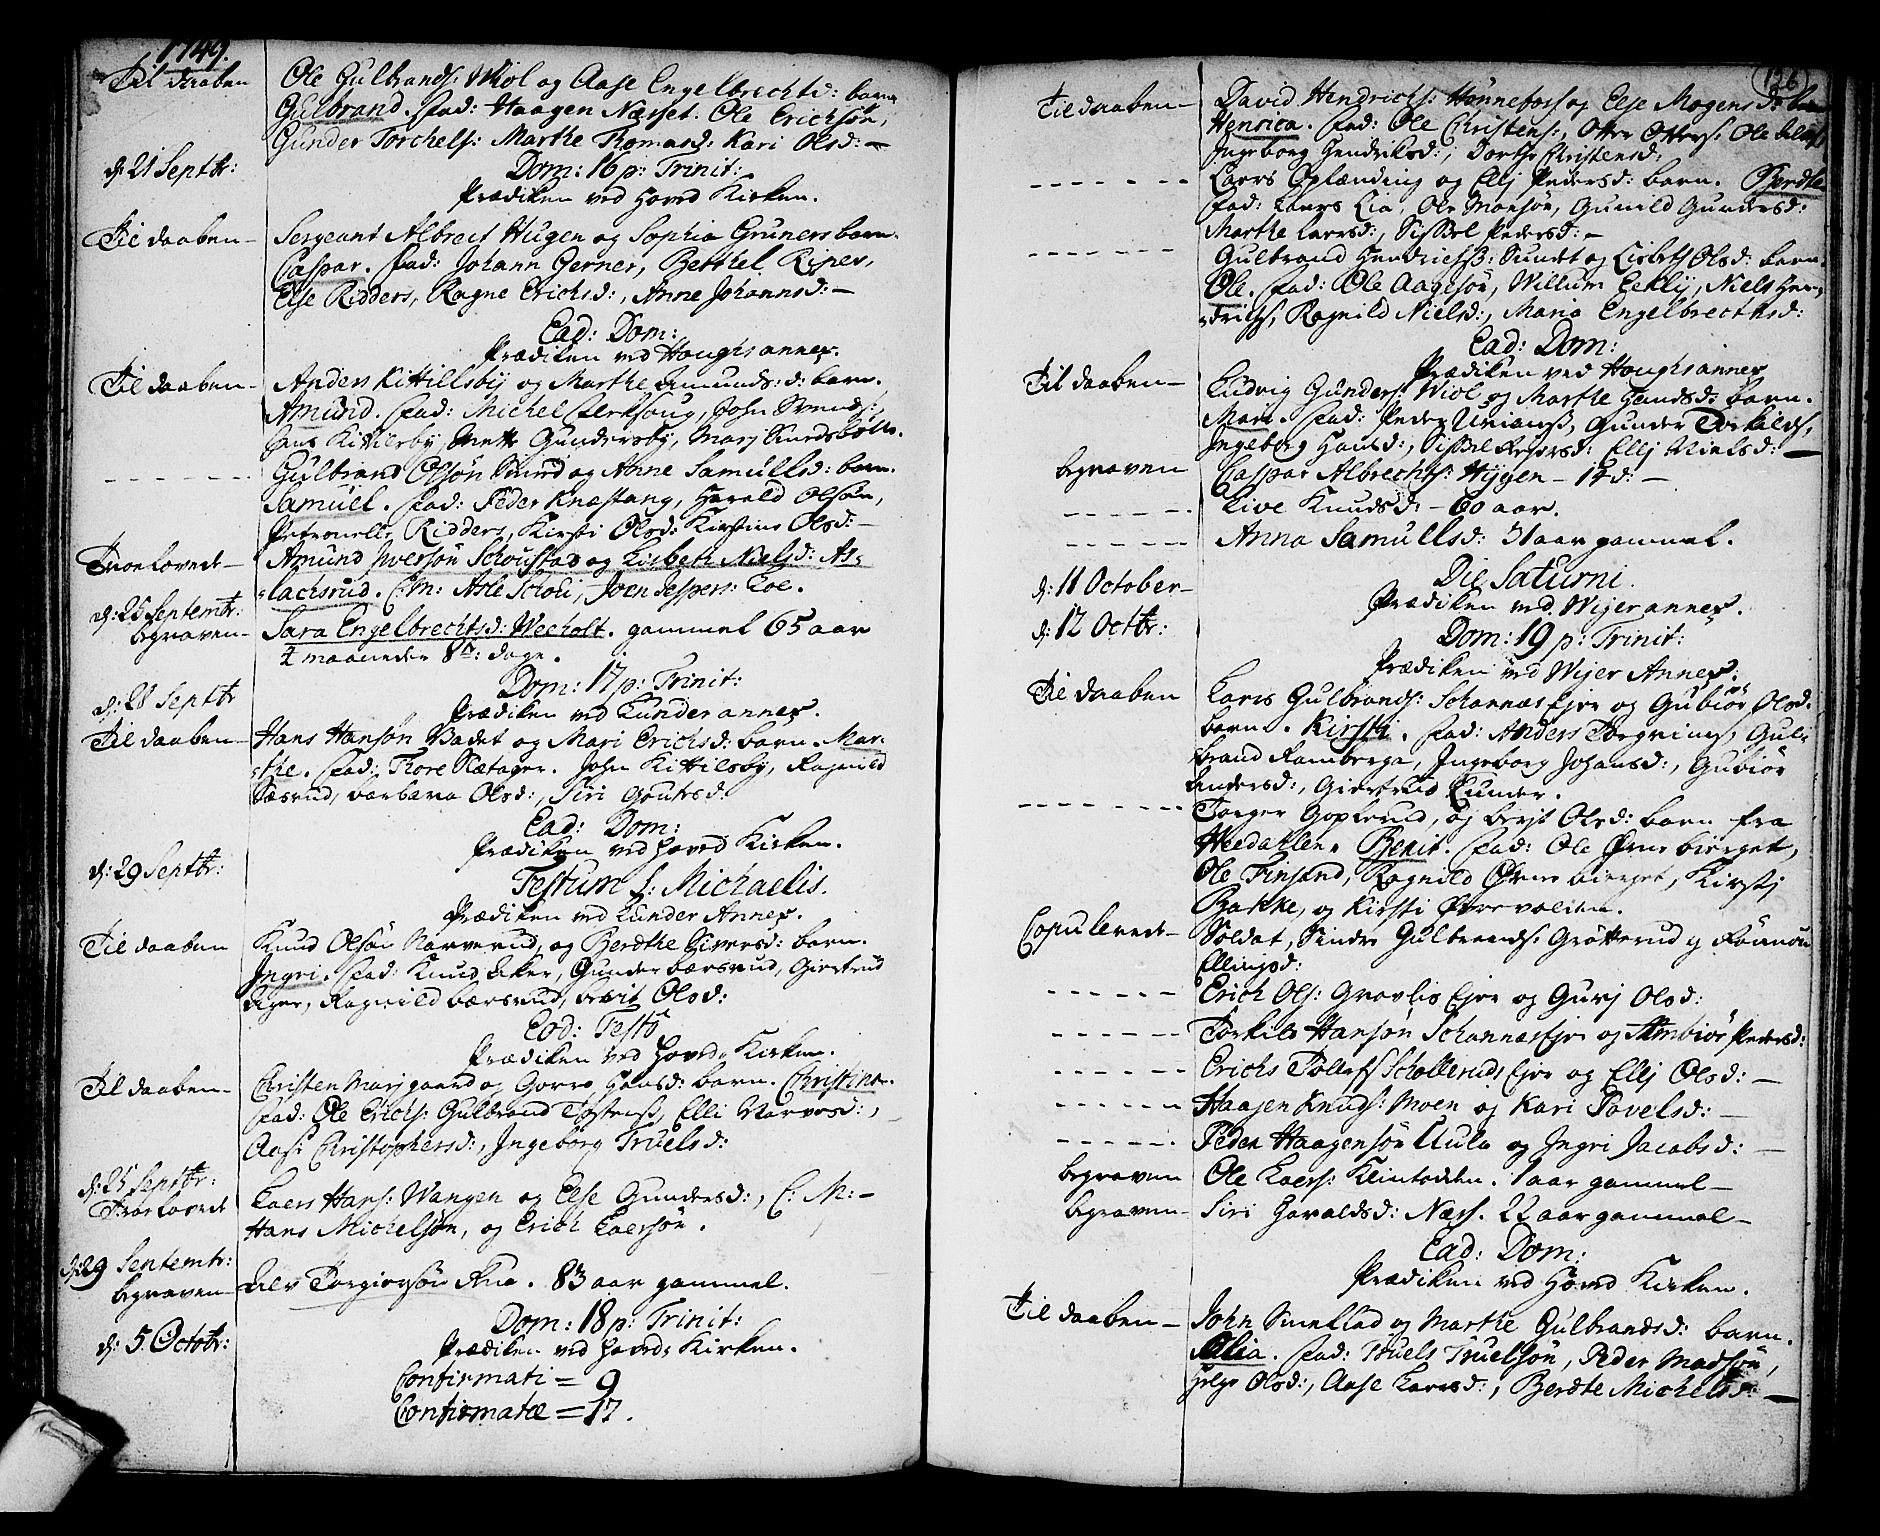 1749.
Til daaben Ole Gulbrands: Wiol og Aase Engelbrechtsd: barn
Gulbrand. fad: Haagen Næsset. Ole Erichsön,
Gunder Torchels: Marthe Thomasd: Kari Olsd: -
d: 21 Septbr: Dom: 16 p: Trinit:
Prædiken ved Hoved Kirken.
Til daaben - Sergeant Albrect Hugen og Sophia Gruners barn.
Caspar. fad: Johann Gerner, Berthel Riper,
Else Ridders, Ragne Erichsd:, Anne Johannsd: -
Ead: Dom:
Prædiken ved Houghs annex.
Til daaben - Anders Kittillsbÿ og Marthe Amunds:d: barn.
Amund. fad: Michel, John Svends:,
Hans Kittilsbÿ, Mette Gundersbÿ, Marj
- - - - - Gulbrand Olssön Smed og Anne Samullsd: barn.
Samuel. fad: Peder Knæstang, Harald Olsön,
Petronelle Ridders, Kirsti Olsd: Kirstine Olsd: -
Troelovede - Amund Iversön Schoustad og Lisbeth Nielsd: As-
lachsrud. C:M: Asle Scholi, Joen Jespers: Loe.
d: 25 Septembr:
begraven - Sara Engelbrechtsd: Weeholt. gammel 65 aar
4 maaneder 8te: dage.
d: 28 Septbr Dom: 17 p: Trinit:
Prædiken ved Lunder annex.
Til daaben - Hans Hansön Badet og Mari Erichsd: barn. Mar-
the. fad: Thore Sætager. John Kittilsbÿ, Ragnild
Sæsrud, barbara Olsd:, Siri Gouted:
Ead: Dom:
Prædiken ved Hoved Kirken.
d: 29 Septbr: Festum S: Michaelis.
Prædiken ved Lunder Annex.
Til daaben Knud Olsön Narverud, og Berdthe Siversd: barn.
Ingri. fad: Knud Ager, Gunder bærsrud, Giertrud
Ager, Ragnild bærsrud, berit Olsd:
Eod: Festo
Prædiken ved Hoved Kirken.
Til daaben - Christen Marjgaard og Gorro Hansd: barn. Christine.
fad: Ole Erichs: Gulbrand Tostens, Elli Narvesd:,
Aase Christophersd:, Ingeborg Truelsd:
d: 25 Septbr:
Troelovede Laers Hans: Wangen og Else Gundersd:, C: M: -
Hans Michelsön, og Erich Laersön.
d: 29 Septembr:
begraven - Torgiersön. 83 aar gammel.
d: 5 Octobr: Dom: 18 p: Trinit:
Prædiken ved Hoved Kirken.
Confirmati = 9
Confirmatæ = 17.
126
Til daaben - David Hendrichs: Hönnefoss og Else Mogensd: barn
Henrica. fad: Ole Christens:, Otter Otters: Ole
Ingeborg Hendriksd:, Dorthe Christensd:
- - - - - Laers Oplænding og Ellj Pedersd: barn. Berdthe
fad: Laers Lia, Ole Monsön, Gunild Gundersd:
Marthe Larsd:, Sissel Pedersd: -
- - - - - Gulbrand Hendrichs: Sundet og Lisbeth Olsd: barn.
Ole. fad: Ole Aagesön, Willum Eeklÿ, Niels Hen-
drichs, Ragnild Nielsd:, Maria Engelbrechtsd:
Ead: Dom:
Prædiken ved Houghs annex
Til daaben - Ludvig Gunders: Wiol og Marthe Hansd: barn.
Mari. fad: Peder, Gunder Torkilds,
Ingeberg Hansd:, Sissel Pedersd: Ellj Nielsd: -
begraven Caspar Albrechts: Hÿgen - 14 d: -
- - - - - Live Knudsd: - 60 aar.
- - - - - Anna Samullsd: 31 aar gammel.
d: 11 October - Die Saturni.
Prædiken ved Wijer annex.
d: 12 Octbr: Dom: 19 p: Trinit:
Prædiken ved Wijer Annex.
Til daaben Lars Gulbrands: Schannæs Ejer og Gubiör Olsd.
barn. Kirsti. fad: Anders, Gul-
brand Ramberga, Ingeborg Johansd:, Gubiör
Andersd:, Giertrud Lunder.
- - - - - Torger Goplerud, og berjt Olsd: barn fra
Heedahlen. Berit. fad: Ole Örnebierget,
Ole Finsand, Ragnild Örnebierget, Kirstj
Bakke, og Kirsti
Copulerede - Soldat, Sindre Gulbrands: Gröterud og Rönnou
Ellingsd:
- - - - - Erich Ols: Gravlis Ejer og Gurj Olsd:
- - - - - Torkild Hansön Schannæs Ejer og Ambiör Pedersd:
- - - - - Erichs Tollefs Schollerud Ejer og Ellj Olsd: -
- - - - - Haagen Knuds: Moen og Kari Povelsd: -
- - - - - Peder Haagensön og Ingri Jacobsd: -
begraven Ole Laers: Kleintodden. 1 aar gammel -
begraven - Siri Haraldsd: Næss. 22 aar gammel -
Ead: Dom:
Prædiken ved Hoved Kirken.
Til daaben - John Smeklad og Marthe Gulbrandsd: barn.
Olia. fad: Truels Truelsön, Peder Madsön,
Helge Olsd:, Aase Larsd:, Berdte Michelsd: -